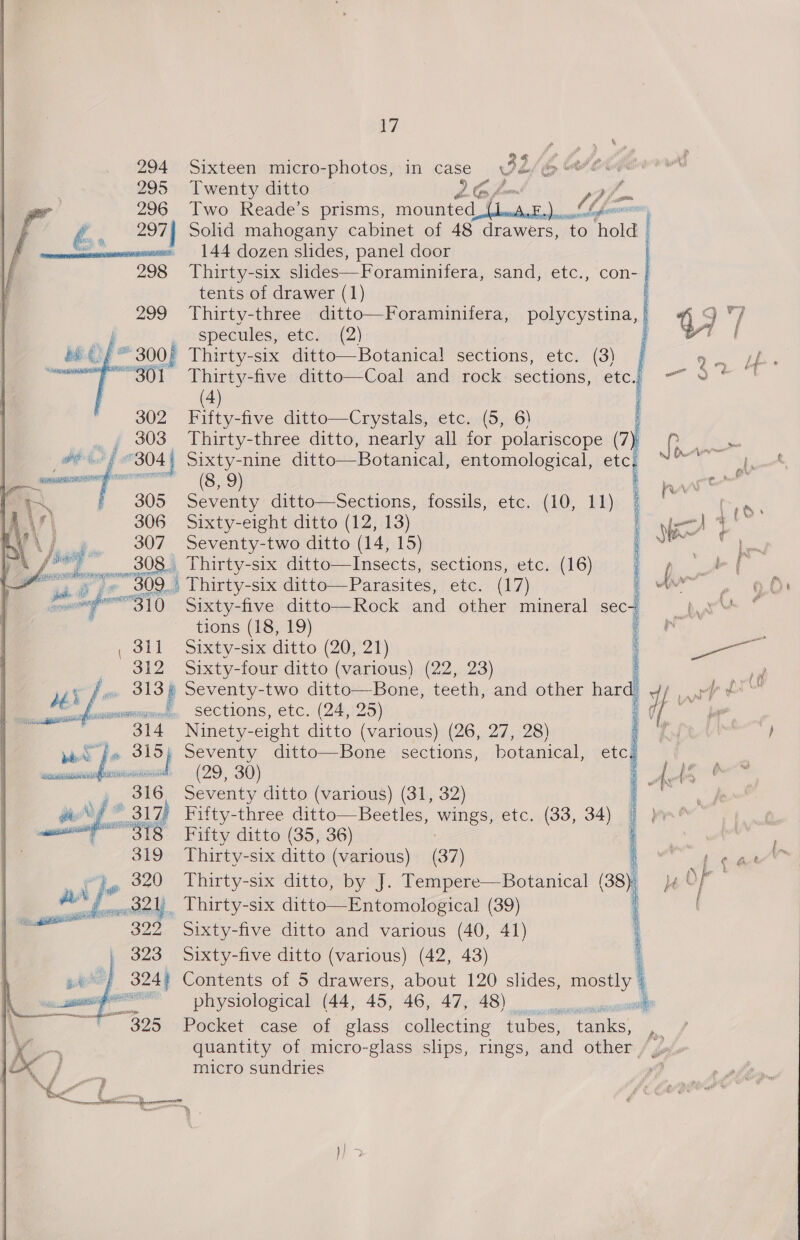 17
294 Sixteen micro-photos, in case 32/6
295 Twenty ditto 26/-
296 Two Reade's prisms, mounted (L.A.E.)
297 Solid mahogany cabinet of 48 drawers, to hold
144 dozen slides, panel door
298 Thirty-six slides—Foraminifera, sand, etc., con-
tents of drawer (1)
299 Thirty-three ditto—Foraminifera, polycystina,
specules, etc. (2)
300 Thirty-six ditto—Botanical sections, etc. (3)
301 Thirty-five ditto—Coal and rock sections, etc.
(4)
302 Fifty-five ditto—Crystals, etc. (5, 6)
303 Thirty-three ditto, nearly all for polariscope (7)
304 Sixty-nine ditto—Botanical, entomological, etc.
(8, 9)
305 Seventy ditto—Sections, fossils, etc. (10, 11)
306 Sixty-eight ditto (12, 13)
307 Seventy-two ditto (14, 15)
308 Thirty-six ditto—Insects, sections, etc. (16)
309 Thirty-six ditto—Parasites, etc. (17)
310 Sixty-five ditto—Rock and other mineral sec-
tions (18, 19)
311 Sixty-six ditto (20, 21)
312 Sixty-four ditto (various) (22, 23)
313 Seventy-two ditto—Bone, teeth, and other hard
sections, etc. (24, 25)
314 Ninety-eight ditto (various) (26, 27, 28)
315 Seventy ditto—Bone sections, botanical, etc.
(29, 30)
316 Seventy ditto (various) (31, 32)
317 Fifty-three ditto—Beetles, wings, etc. (33, 34)
318 Fifty ditto (35, 36)
319 Thirty-six ditto (various) (37)
320 Thirty-six ditto, by J. Tempere—Botanical (38)
321 Thirty-six ditto—Entomological (39)
322 Sixty-five ditto and various (40, 41)
323 Sixty-five ditto (various) (42, 43)
324 Contents of 5 drawers, about 120 slides, mostly
physiological (44, 45, 46, 47, 48)
325 Pocket case of glass collecting tubes, tanks,
quantity of micro-glass slips, rings, and other
micro sundries